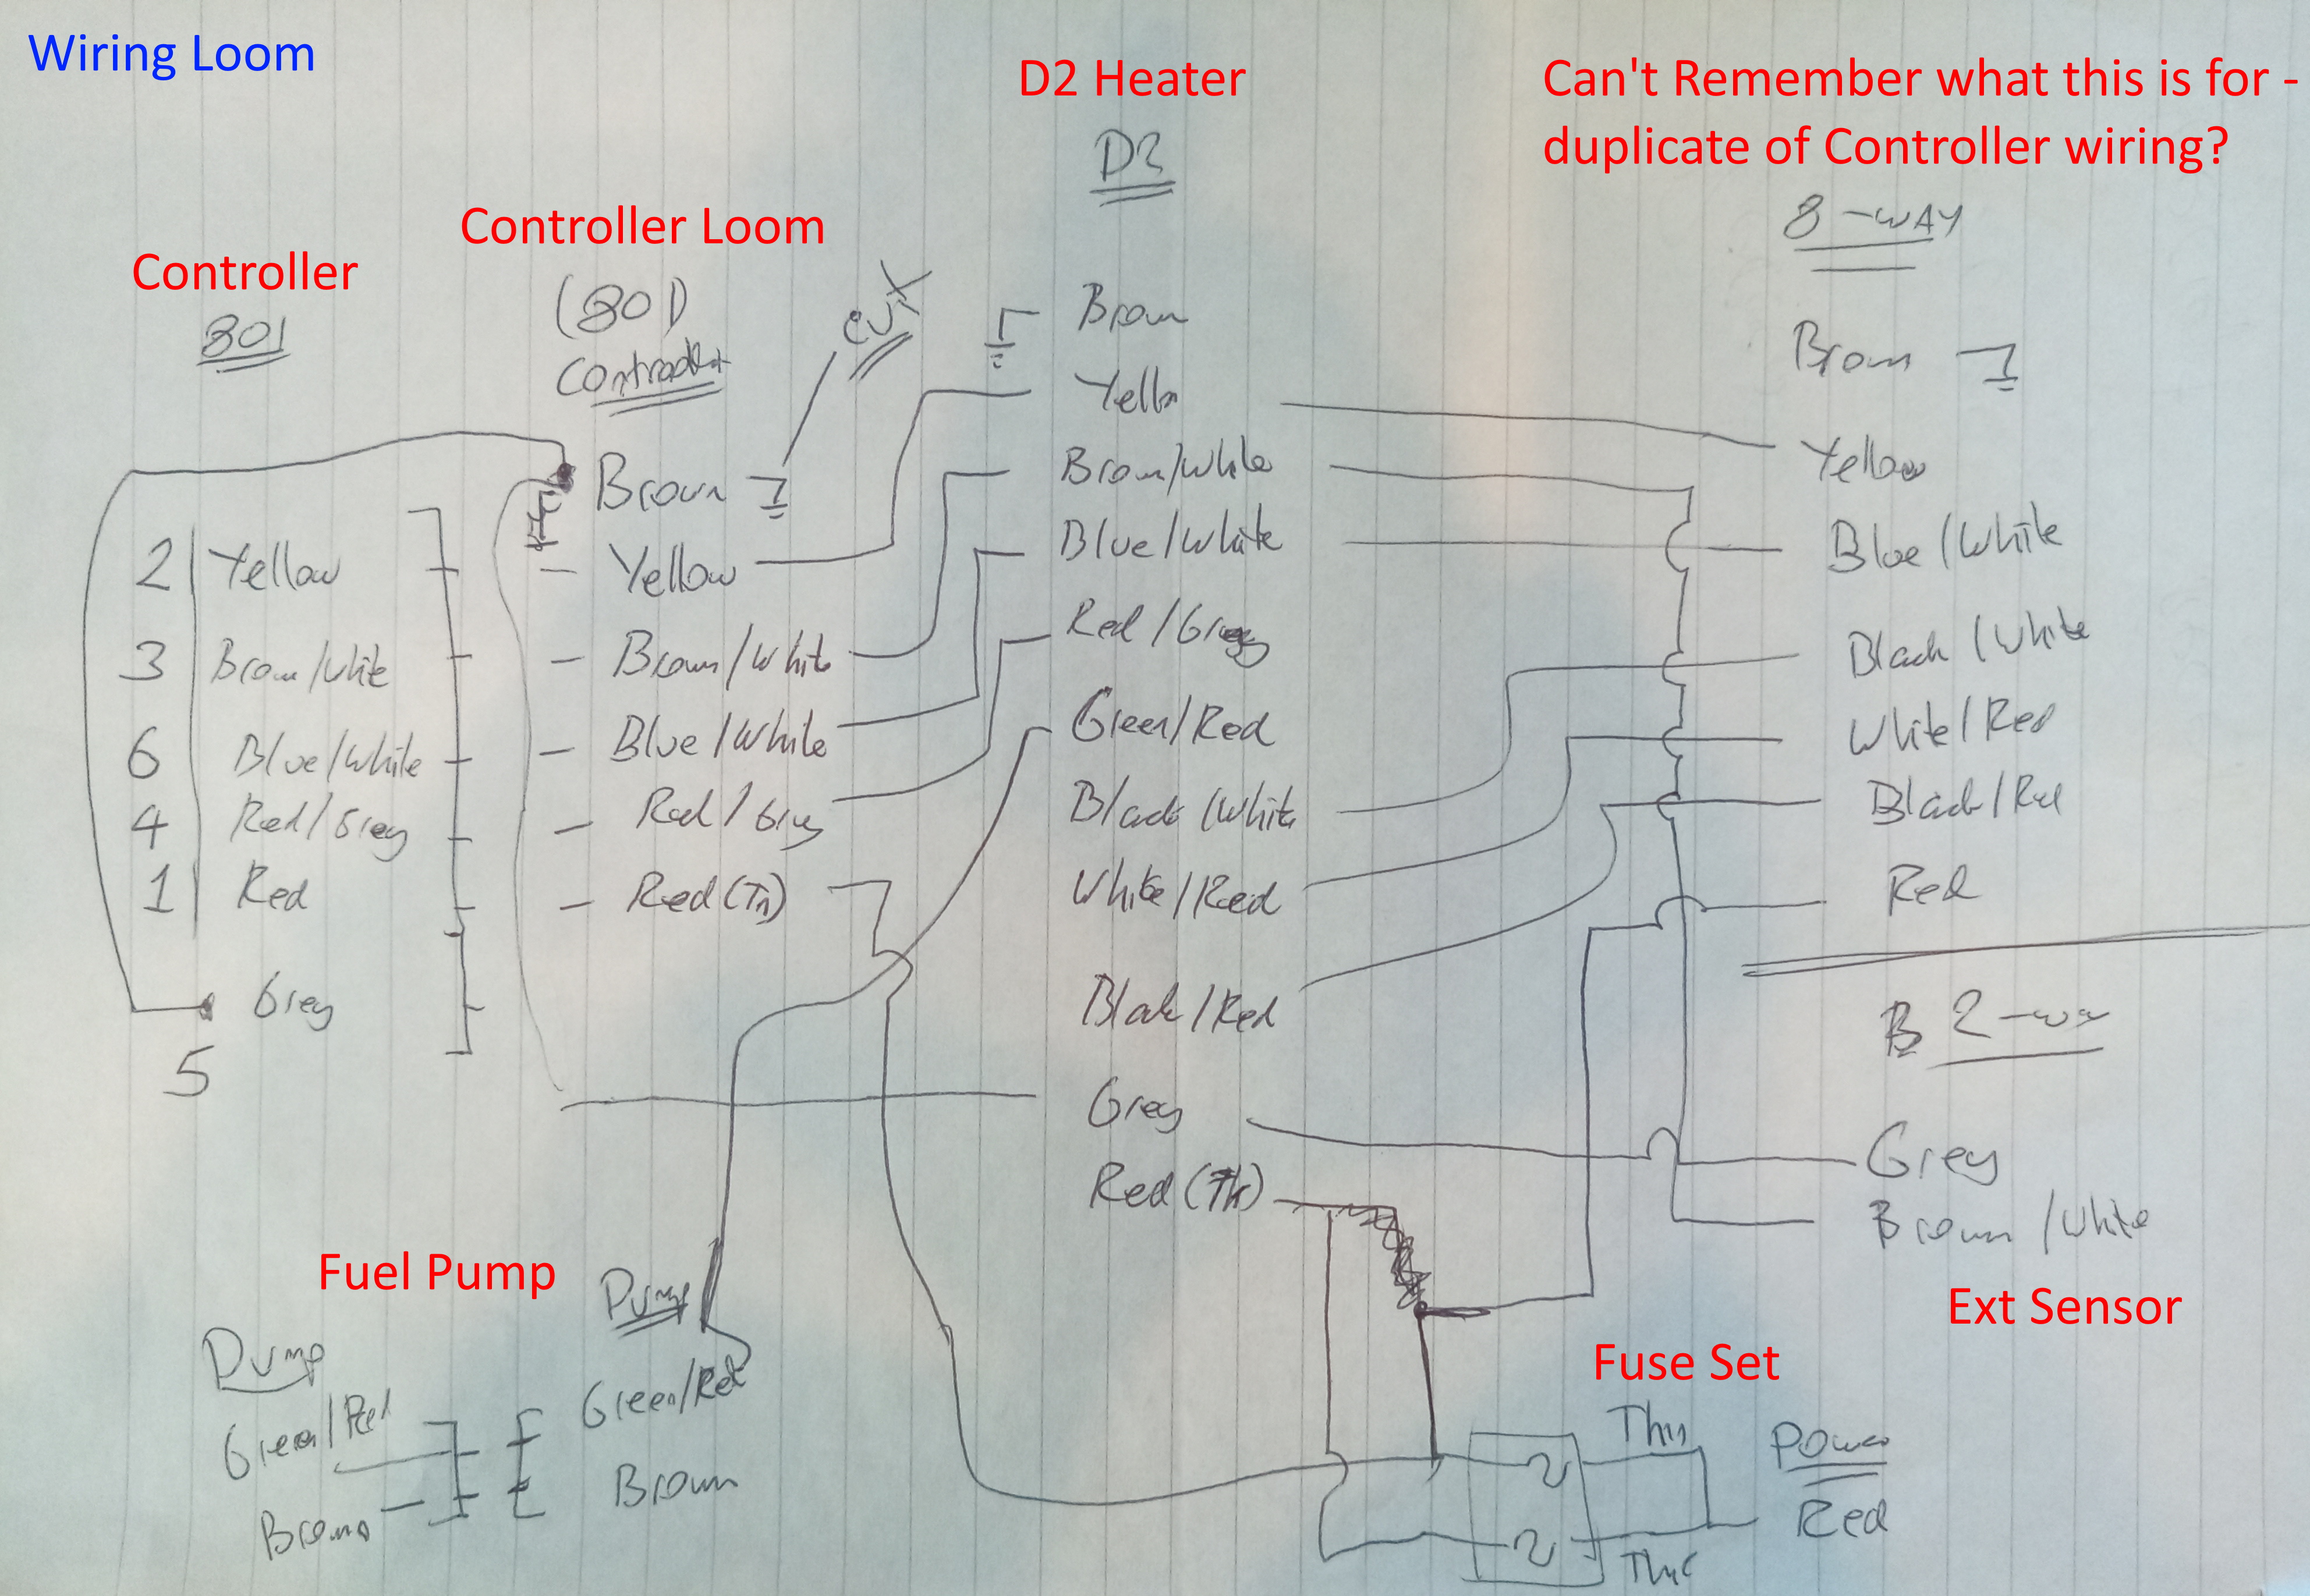 Wiring Loom
D2 Heater
Can't Remember what this is for -
duplicate of Controller wiring?
D2
8-WAY
Controller Loom
Controller
801
(801)
CUT
Brown
Yellow
Brown/White
Blue/White
Red/Grey
Green/Red
Black/White
White/Red
Black/Red
Grey
Red (Tk)
Brown
Yellow
Blue/White
Black/White
White/Red
Black/Red
Red
B 2-way
Grey
Brown/White
Ext Sensor
Brown
Yellow
Brown/White
Blue/White
Red/Grey
Red (Tn)
2 Yellow
3 Brown/White
6 Blue/White
4 Red/Grey
1 Red
Grey
5
Fuel Pump
Pump
Pump
Green/Red
Brown
Green/Red
Brown
Fuse Set
Thin
Power
Red